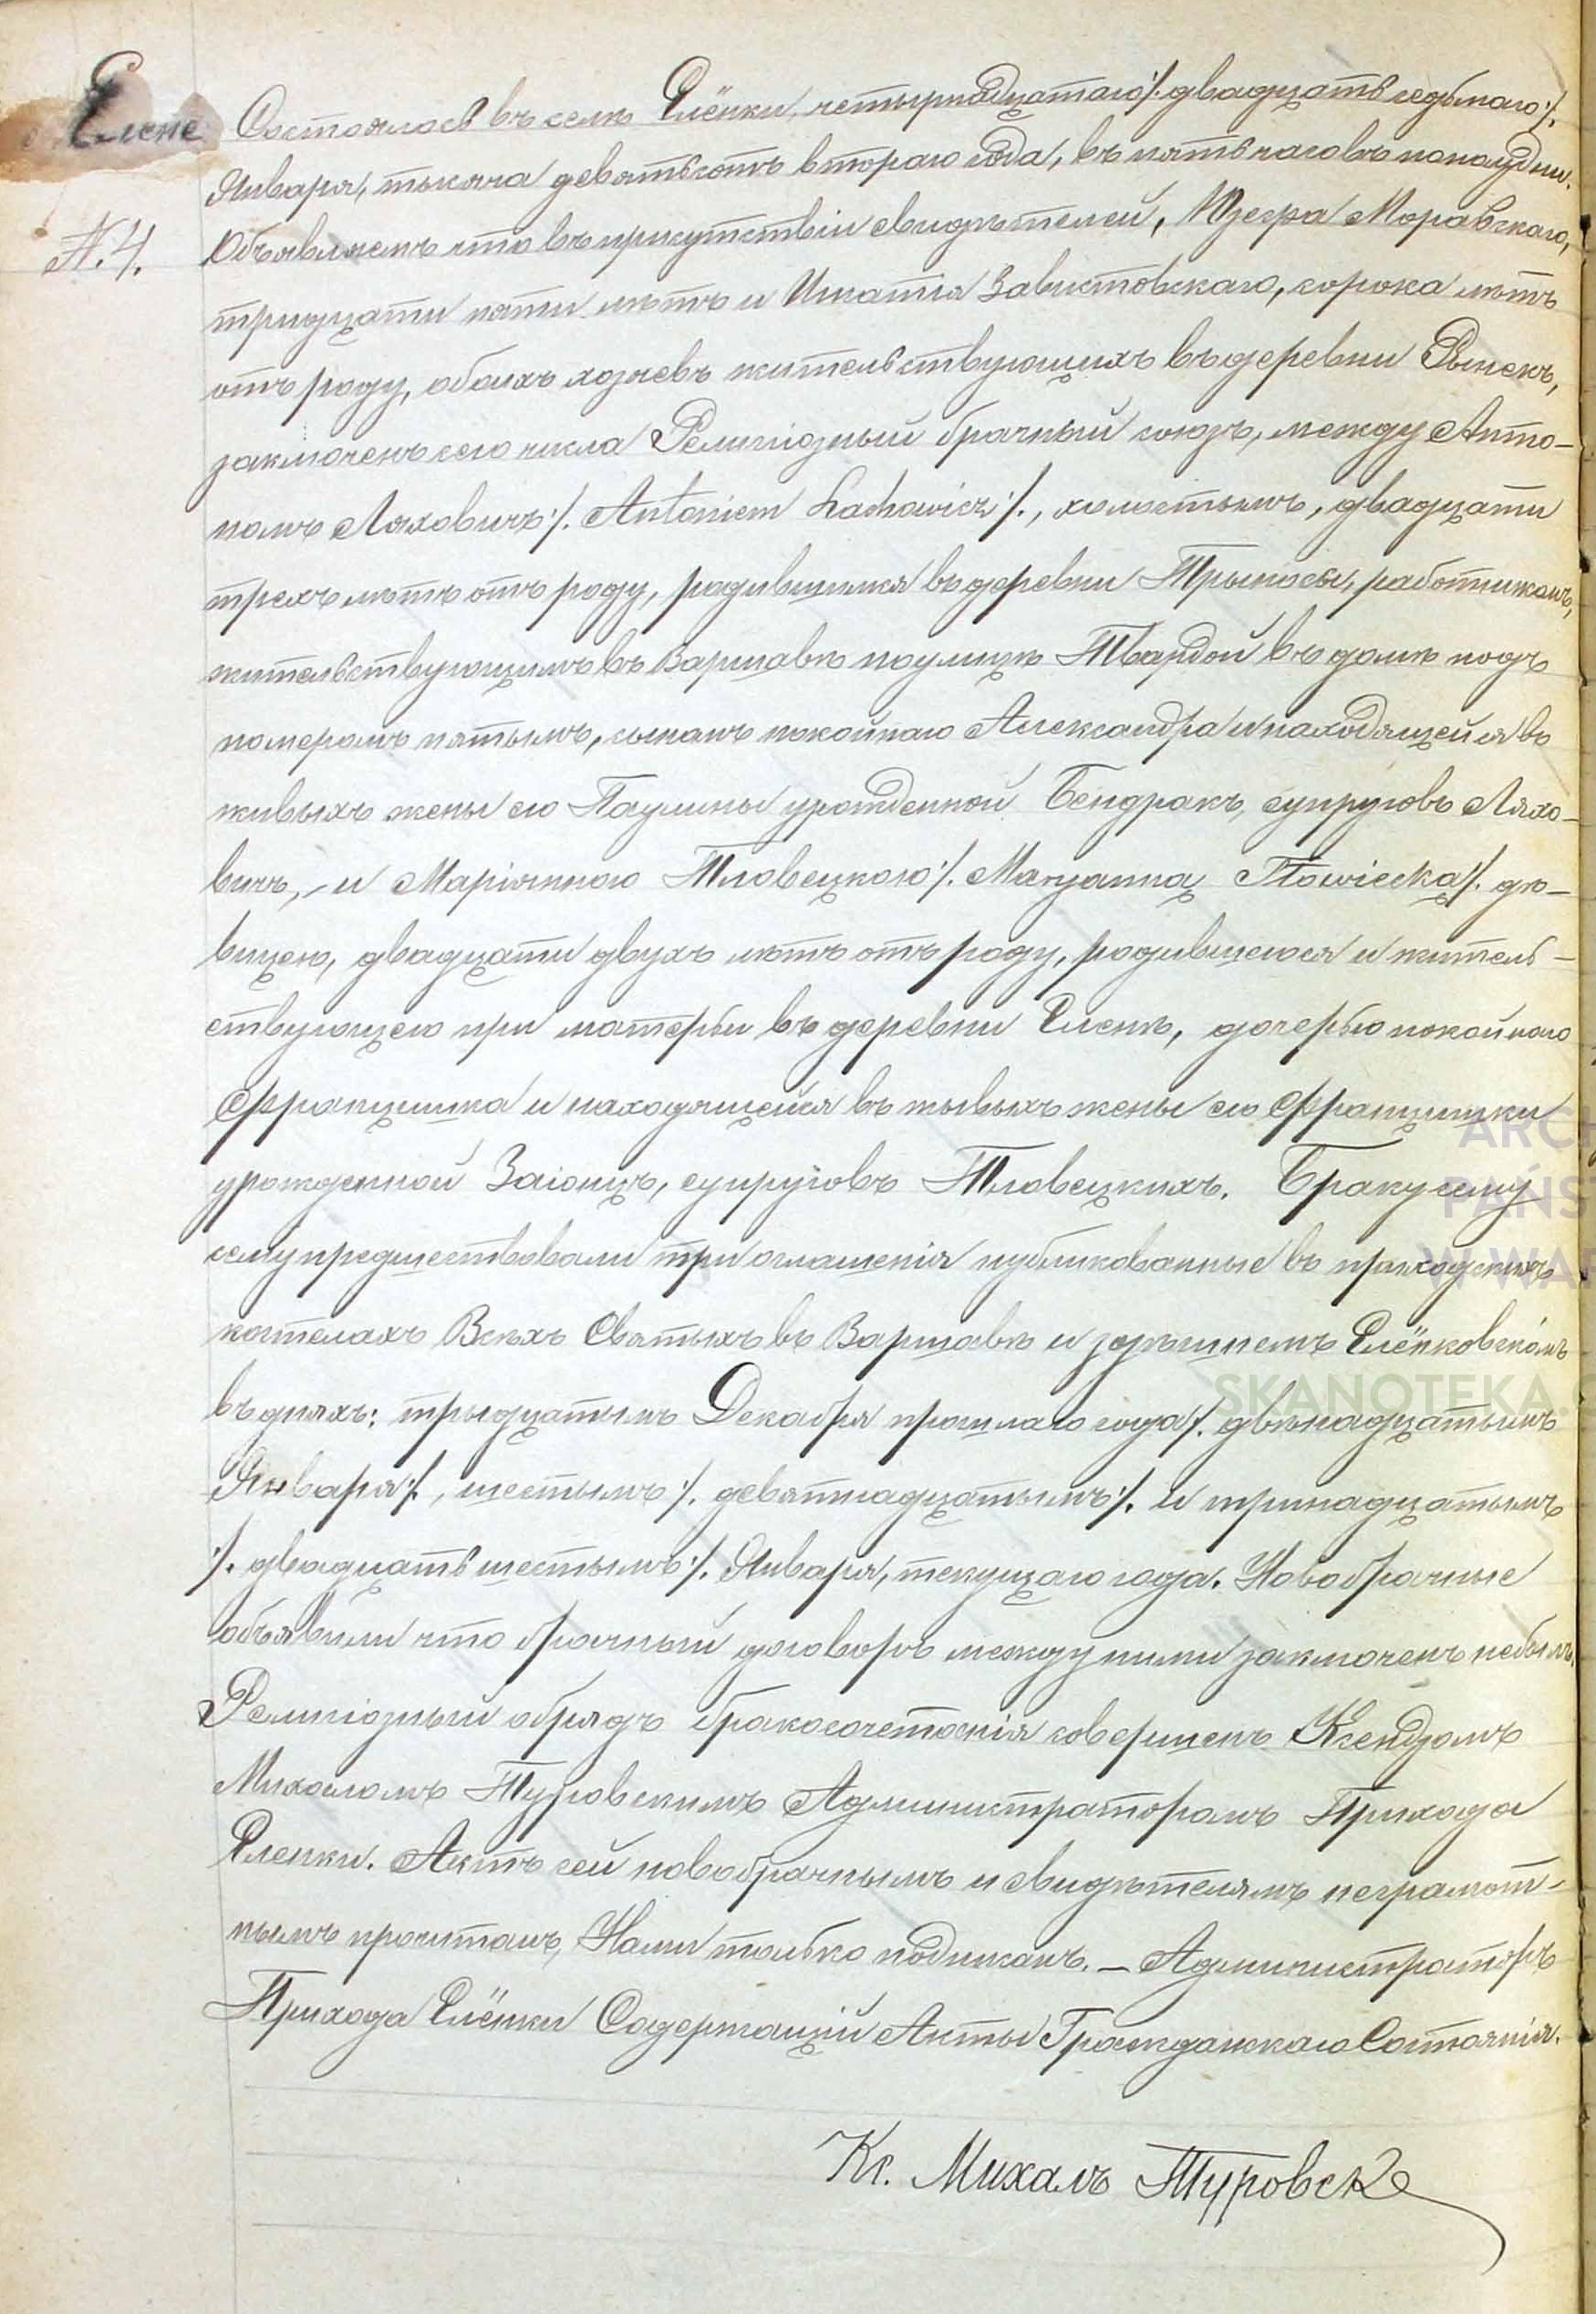 Елене
N. 4.
Состоялось въ селѣ Елёнки, четырнадцатаго /. двадцать седьмаго /.
Января, тысяча девятьсотъ втораго года, въ пять часовъ пополудни.
Объявляемъ что въ присутствіи свидѣтелей, Моравскаго,
тридцати пяти лѣтъ и Игнатія Завистовскаго, сорока лѣтъ
отъ роду, обоихъ хозяевъ жительствующихъ въ деревни Рынекъ,
заключенъ сего числа Религіозный брачный союзъ, между Анто-
номъ Ляховичъ /. Antoniem Lachowicz /., холостымъ, двадцати
трехъ лѣтъ отъ роду, родившимся въ деревни Трыносы, работникомъ,
жительствующимъ въ Варшавѣ по улицѣ Твардой въ домѣ подъ
номеромъ пятымъ, сыномъ покойнаго Александра и находящейся въ
живыхъ жены его Паулины урожденной Бендракъ, супруговъ Ляхо-
вичъ, - и Маріянною Тловецкою /. Maryanną Tłowiecką /. дѣ-
вицею, двадцати двухъ лѣтъ отъ роду, родившеюся и житель-
ствующею при матерьи въ деревни Еленѣ, дочерью покойнаго
Францишка и находящейся въ жывыхъ жены его Францишки
урожденной Заіонцъ, супруговъ Тловецкихъ. Браку сему
сему предшествовали три оглашенія публикованные въ приходскихъ
костелахъ Всѣхъ Святыхъ въ Варшавѣ и здѣшнемъ Елёнковскомъ
въ дняхъ: трыдцатымъ Декабря прошлаго года /. двѣнадцатымъ
Января /., шестымъ /. девятнадцатымъ /. и тринадцатымъ
/. двадцать шестымъ /. Января, текущаго года. Новобрачные
объявили что брачный договоръ между ними заключенъ небылъ.
Религіозный обрядъ бракосочетанія совершенъ Ксендзомъ
Михаломъ Туровскимъ Администраторомъ Прихода
Еленки. Актъ сей новобрачнымъ и свидѣтелямъ неграмот-
нымъ прочитанъ, Нами только подписанъ. - Администраторъ
Прихода Елёнки Содержащій Акты Гражданскаго Состоянія.
Кс. Михалъ Туровскі
ARCH
PAŃST
W WAR
SKANOTEKA.